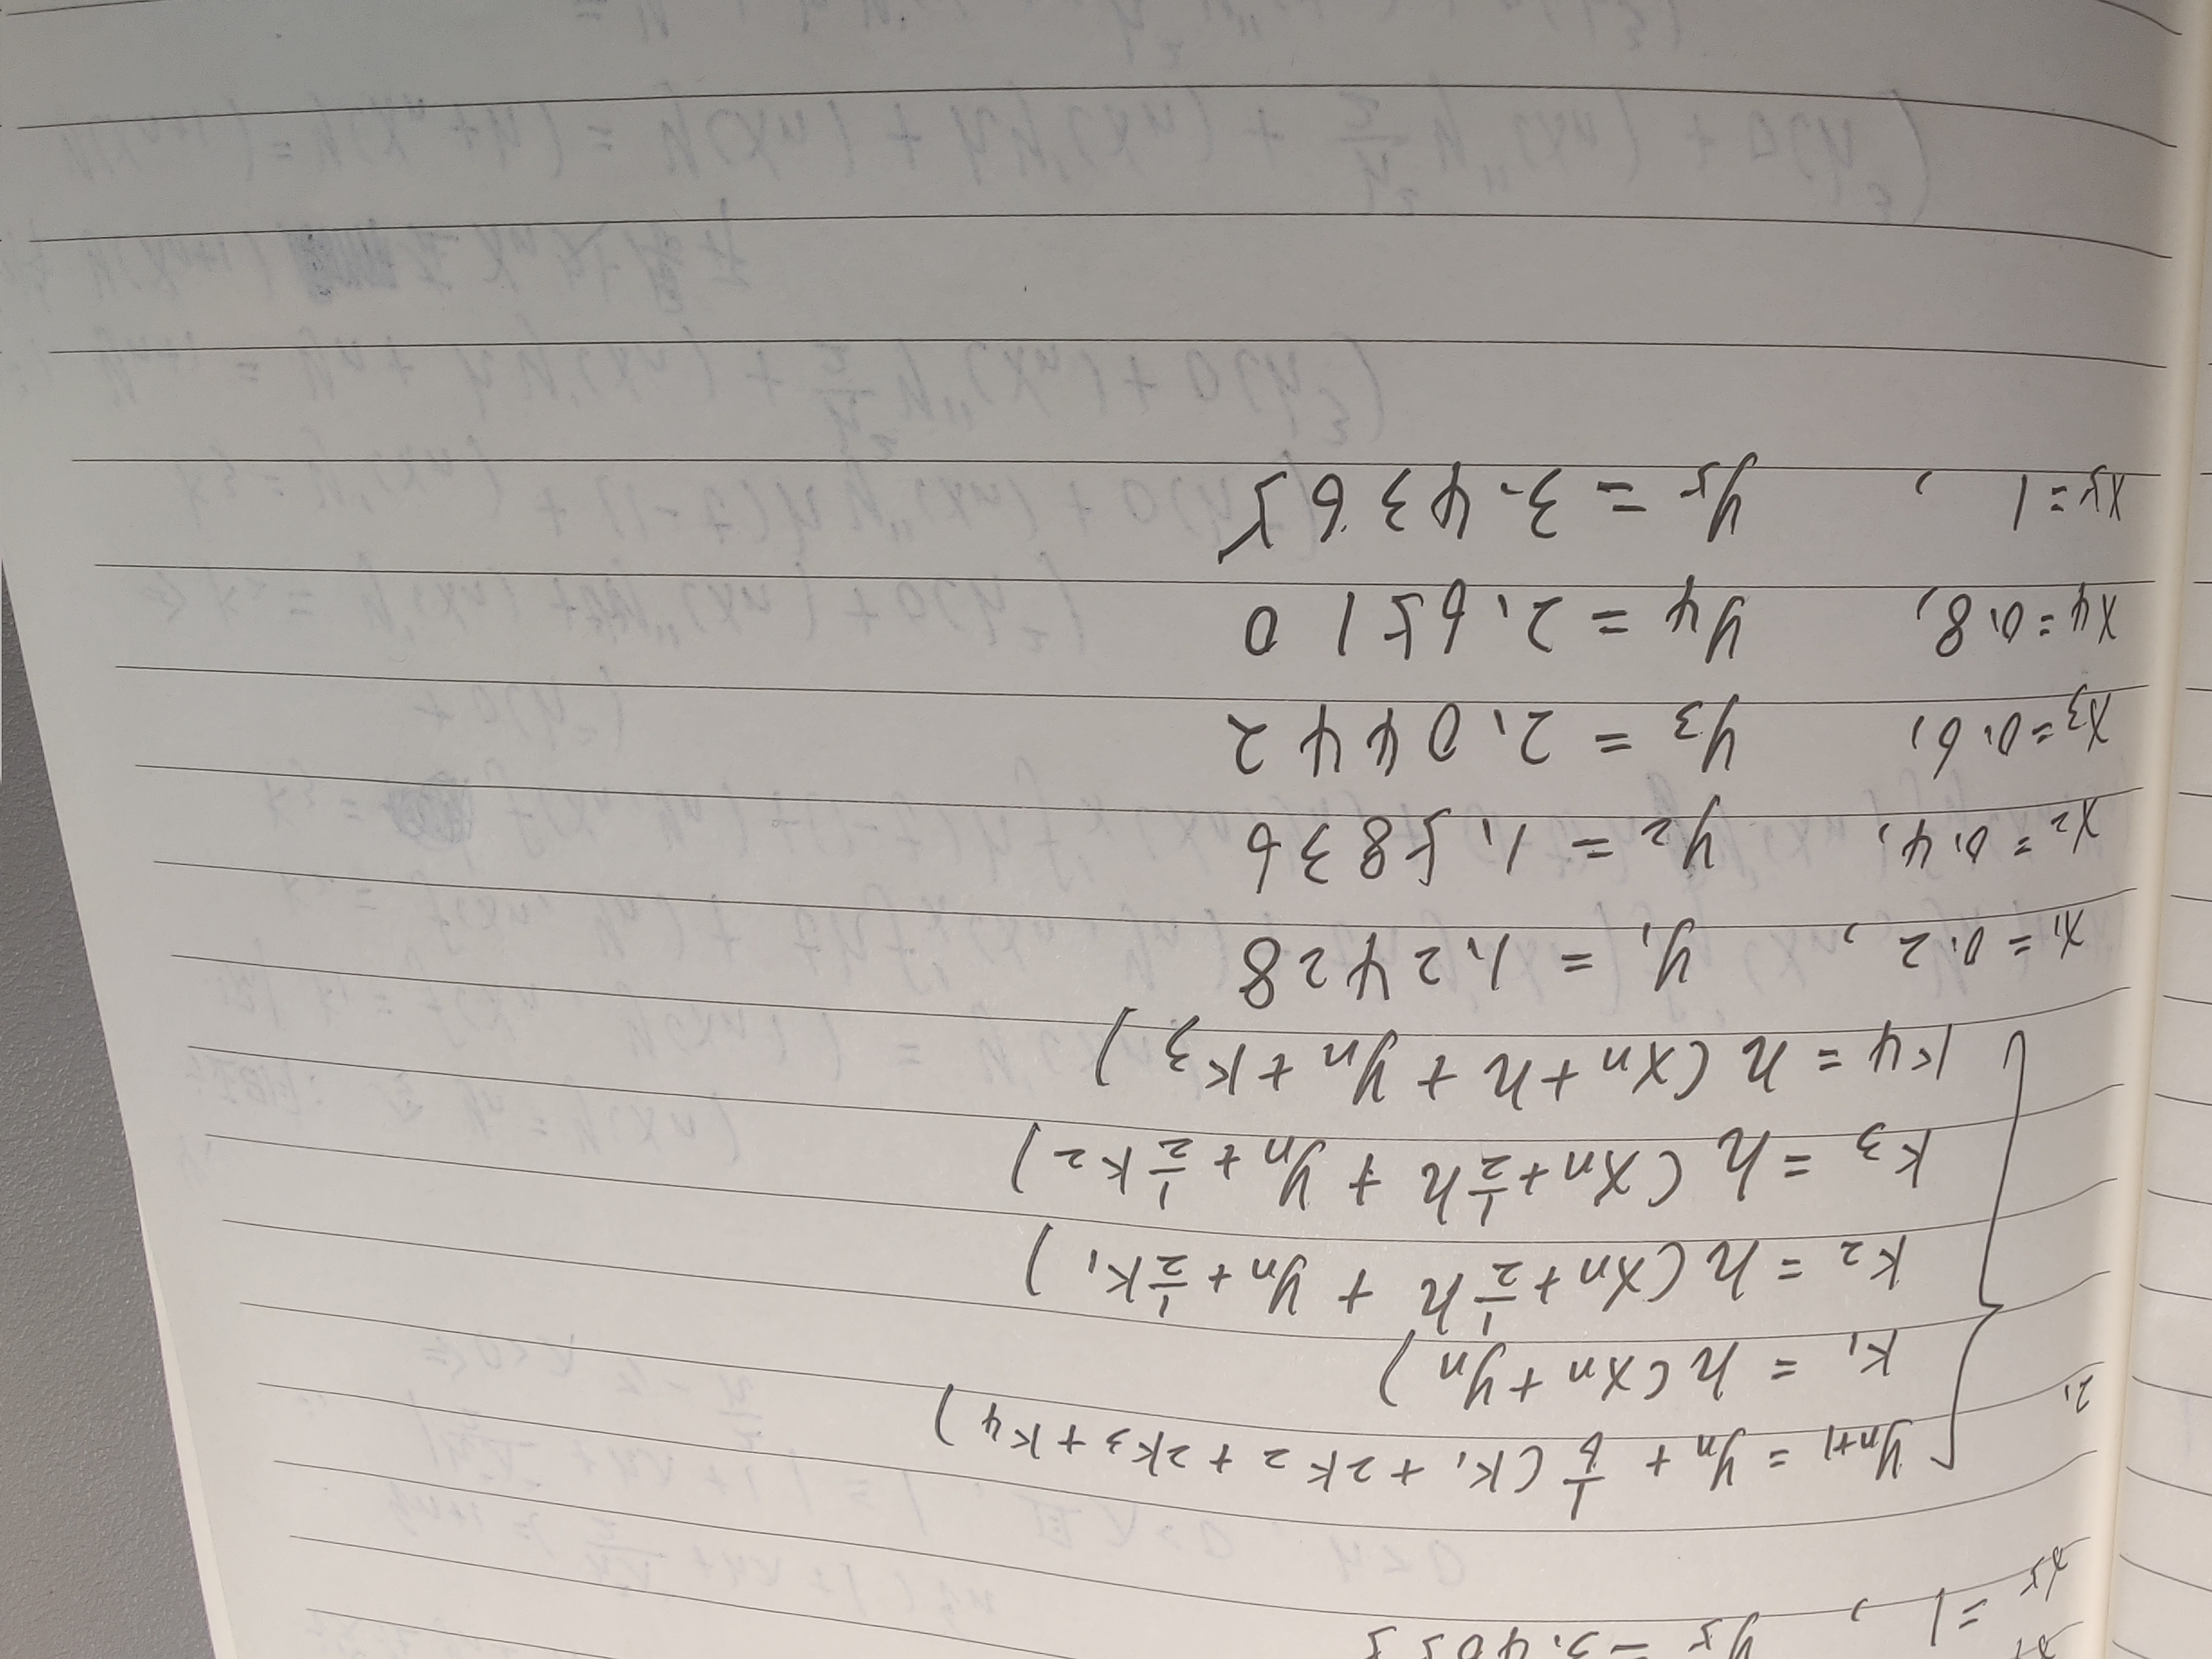 x5 = 1 , y5 = 3.4055
2. { yn+1 = yn + 1/6 (K1 + 2K2 + 2K3 + K4)
K1 = h (xn + yn)
K2 = h (xn + 1/2 h + yn + 1/2 K1)
K3 = h (xn + 1/2 h + yn + 1/2 K2)
K4 = h (xn + h + yn + K3)
x1 = 0.2 , y1 = 1.2428
x2 = 0.4, y2 = 1.5836
x3 = 0.6, y3 = 2.0442
x4 = 0.8, y4 = 2.6510
x5 = 1 , y5 = 3.4365